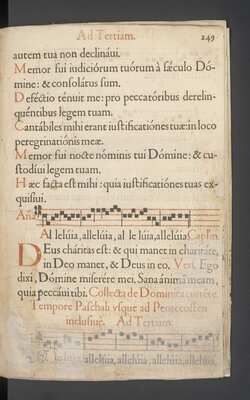 Ad Tertiam. 249
autem tuâ non declináui.
Memor fui iudiciórum tuórum à sǽculo Dó-
mine: & consolátus sum.
Deféctio ténuit me: pro peccatóribus derelin-
quéntibus legem tuam.
Cantábiles mihi erant iustificatiónes tuæ: in loco
peregrinatiónis meæ.
Memor fui nocte nóminis tui Dómine: & cu-
stodíui legem tuam.
Hæc facta est mihi: quia iustificatiónes tuas ex-
quisíui.
Aña
Al lelúia, allelúia, al le lúia, allelúia Capľm
Deus cháritas est: & qui manet in charitáte,
in Deo manet, & Deus in eo. Vers. Ego
dixi, Dómine miserére mei. Sana ánimã meam,
quia peccáui tibi. Collecta de Dominica currẽte.
Tempore Paschali vsque ad Pentecosten
inclusiuè. Ad Tertiam.
allelúia, allelúia, allelúia, allelúia